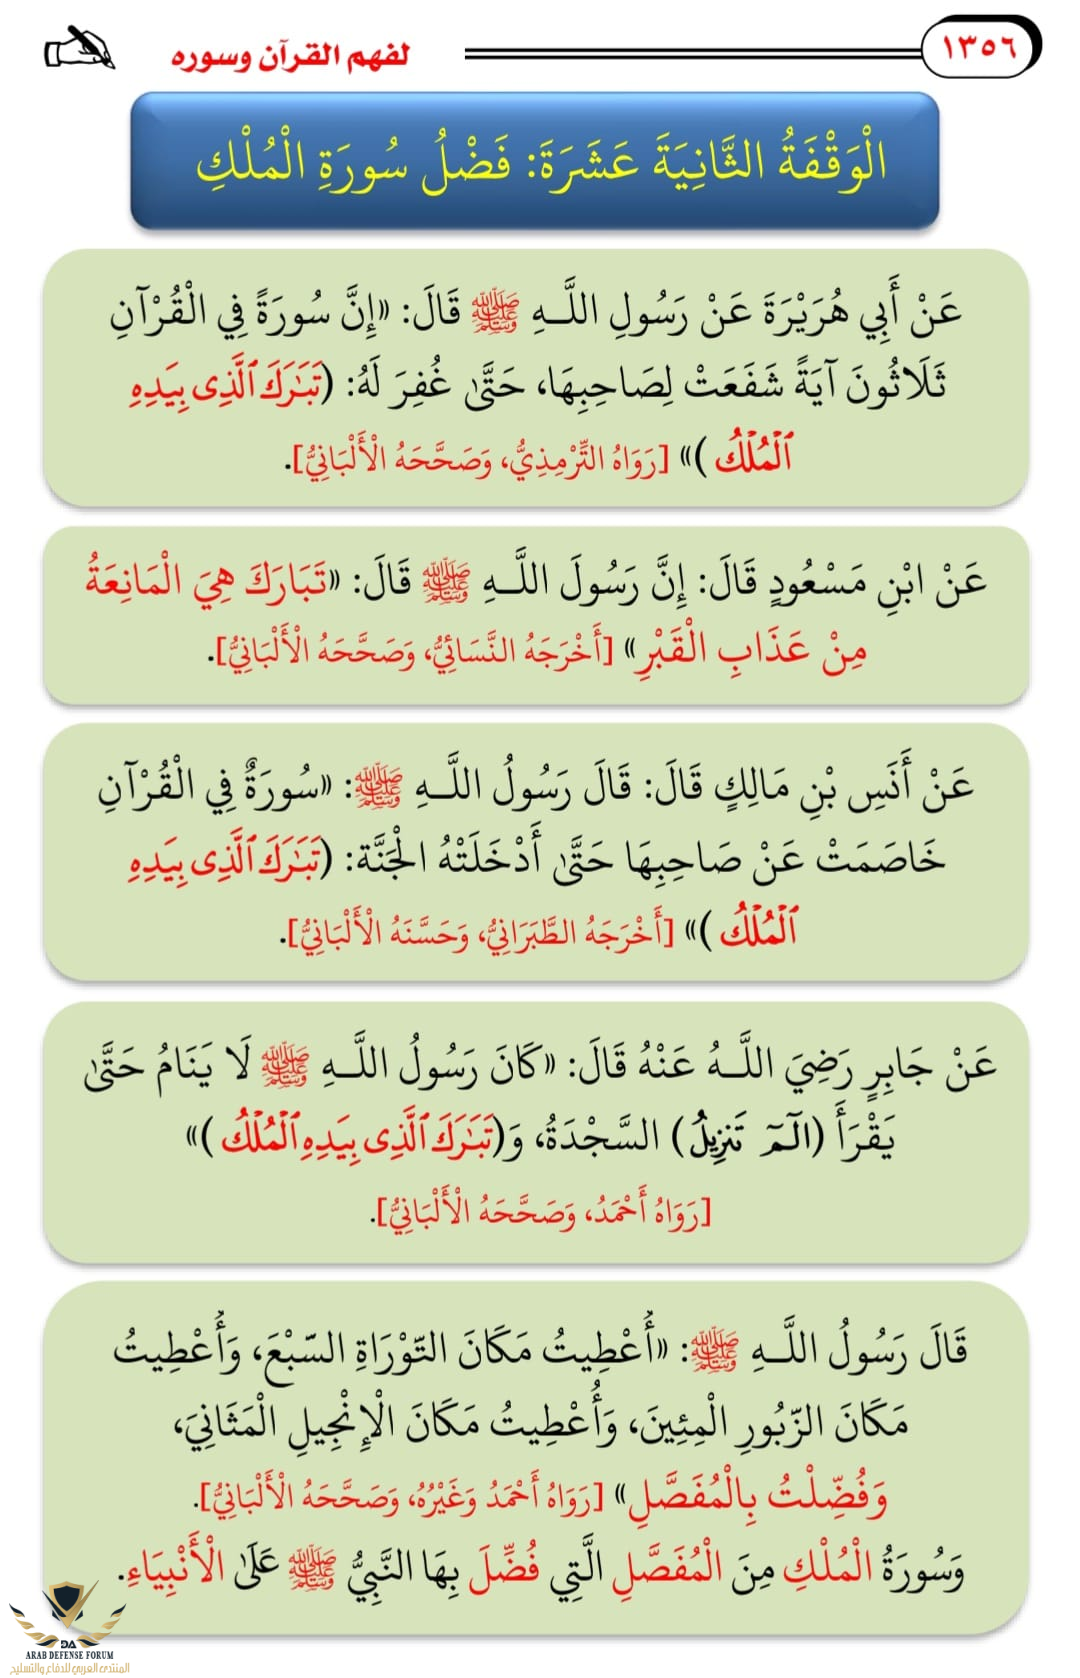 ١٣٥٦
لفهم القرآن وسوره
الْوَقْفَةُ الثَّانِيَةَ عَشَرَةَ: فَضْلُ سُورَةِ الْمُلْكِ
عَنْ أَبِي هُرَيْرَةَ عَنْ رَسُولِ اللَّـهِ ﷺ قَالَ: «إِنَّ سُورَةً فِي الْقُرْآنِ
ثَلَاثُونَ آيَةً شَفَعَتْ لِصَاحِبِهَا، حَتَّىٰ غُفِرَ لَهُ: (تَبَٰرَكَ ٱلَّذِى بِيَدِهِ
ٱلْمُلْكُ)» [رَوَاهُ التِّرْمِذِيُّ، وَصَحَّحَهُ الْأَلْبَانِيُّ].
عَنْ ابْنِ مَسْعُودٍ قَالَ: إِنَّ رَسُولَ اللَّـهِ ﷺ قَالَ: «تَبَارَكَ هِيَ الْمَانِعَةُ
مِنْ عَذَابِ الْقَبْرِ» [أَخْرَجَهُ النَّسَائِيُّ، وَصَحَّحَهُ الْأَلْبَانِيُّ].
عَنْ أَنَسِ بْنِ مَالِكٍ قَالَ: قَالَ رَسُولُ اللَّـهِ ﷺ: «سُورَةٌ فِي الْقُرْآنِ
خَاصَمَتْ عَنْ صَاحِبِهَا حَتَّىٰ أَدْخَلَتْهُ الْجَنَّة: (تَبَٰرَكَ ٱلَّذِى بِيَدِهِ
ٱلْمُلْكُ)» [أَخْرَجَهُ الطَّبَرَانِيُّ، وَحَسَّنَهُ الْأَلْبَانِيُّ].
عَنْ جَابِرٍ رَضِيَ اللَّـهُ عَنْهُ قَالَ: «كَانَ رَسُولُ اللَّـهِ ﷺ لَا يَنَامُ حَتَّىٰ
يَقْرَأَ (الٓمٓ تَنزِيلُ) السَّجْدَةُ، وَ(تَبَٰرَكَ ٱلَّذِى بِيَدِهِ ٱلْمُلْكُ)»
[رَوَاهُ أَحْمَدُ، وَصَحَّحَهُ الْأَلْبَانِيُّ].
قَالَ رَسُولُ اللَّـهِ ﷺ: «أُعْطِيتُ مَكَانَ التّوْرَاةِ السّبْعَ، وَأُعْطِيتُ
مَكَانَ الزّبُورِ الْمِئِينَ، وَأُعْطِيتُ مَكَانَ الْإِنْجِيلِ الْمَثَانِيَ،
وَفُضِّلْتُ بِالْمُفَصَّلِ» [رَوَاهُ أَحْمَدُ وَغَيْرُهُ، وَصَحَّحَهُ الْأَلْبَانِيُّ].
وَسُورَةُ الْمُلْكِ مِنَ الْمُفَصَّلِ الَّتِي فُضِّلَ بِهَا النَّبِيُّ ﷺ عَلَىٰ الْأَنْبِيَاءِ.
DA
ARAB DEFENSE FORUM
المنتدى العربي للدفاع والتسليح